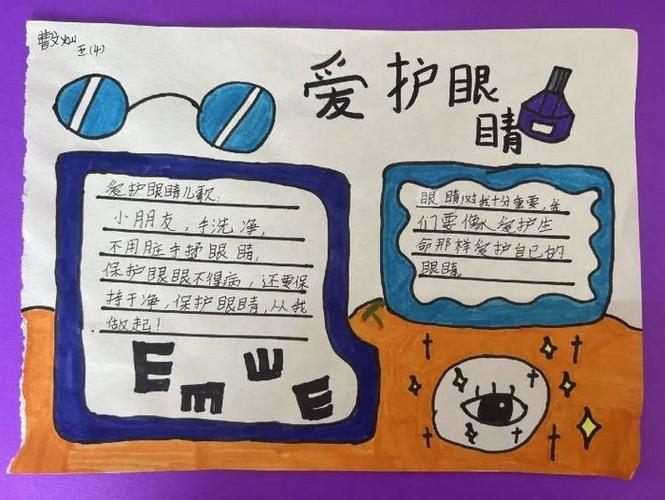 曹文灿
五(4)
爱护眼
睛
爱护眼睛儿歌:
小朋友,手洗净,
不用脏手揉眼睛,
保护眼眼不得病,还要保
持干净,保护眼睛,从我
做起!
E m E E
眼睛对我十分重要,我
们要像爱护生
命那样爱护自己的
眼睛。